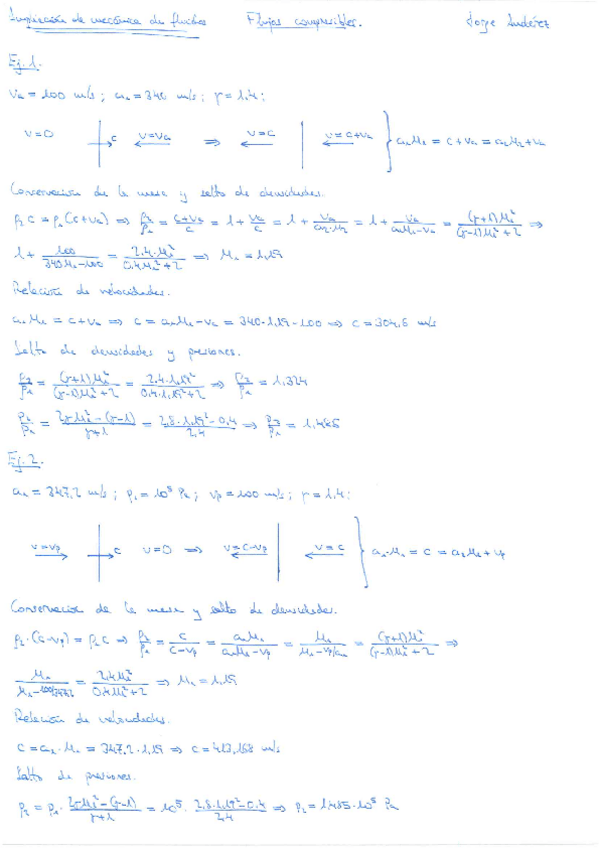 Ampliación de mecánica de fluidos Flujos compresibles. Jorge
Ej. 1.
v_a = 100 m/s ; a_1 = 340 m/s ; γ = 1,4 :
v=0 c v=v_a ⇒ v=c v=c+v_a } a_1M_1 = c+v_a = a_2M_2+v_a
Conservación de la masa y salto de densidades.
ρ_2 c = ρ_1(c+v_a) ⇒ ρ_2/ρ_1 = (c+v_a)/c = 1 + v_a/c = 1 + v_a/(a_2·M_2) = 1 + v_a/(a_1M_1-v_a) = (γ+1)M_1²/((γ-1)M_1²+2) ⇒
1 + 100/(340M_1-100) = 2,4·M_1²/(0,4M_1²+2) ⇒ M_1 = 1,19
Relación de velocidades.
a_1M_1 = c+v_a ⇒ c = a_1M_1-v_a = 340·1,19-100 ⇒ c = 304,6 m/s
Salto de densidades y presiones.
ρ_2/ρ_1 = (γ+1)M_1²/((γ-1)M_1²+2) = 2,4·1,19²/(0,4·1,19²+2) ⇒ ρ_2/ρ_1 = 1,324
p_2/p_1 = (2γM_1²-(γ-1))/(γ+1) = (2,8·1,19²-0,4)/2,4 ⇒ p_2/p_1 = 1,485
Ej. 2.
a_1 = 347,2 m/s ; p_1 = 10⁵ Pa ; v_p = 100 m/s ; γ = 1,4 :
v=v_p c v=0 ⇒ v=c-v_p v=c } a_1·M_1 = c = a_2M_2+v_p
Conservación de la masa y salto de densidades.
ρ_2·(c-v_p) = ρ_1c ⇒ ρ_2/ρ_1 = c/(c-v_p) = a_1M_1/(a_1M_1-v_p) = M_1/(M_1-v_p/a_1) = (γ+1)M_1²/((γ-1)M_1²+2) ⇒
M_1/(M_1-100/347,2) = 2,4M_1²/(0,4M_1²+2) ⇒ M_1 = 1,19
Relación de velocidades.
c = a_1·M_1 = 347,2·1,19 ⇒ c = 413,168 m/s
Salto de presiones.
p_2 = p_1·(2γM_1²-(γ-1))/(γ+1) = 10⁵·(2,8·1,19²-0,4)/2,4 ⇒ p_2 = 1,485·10⁵ Pa